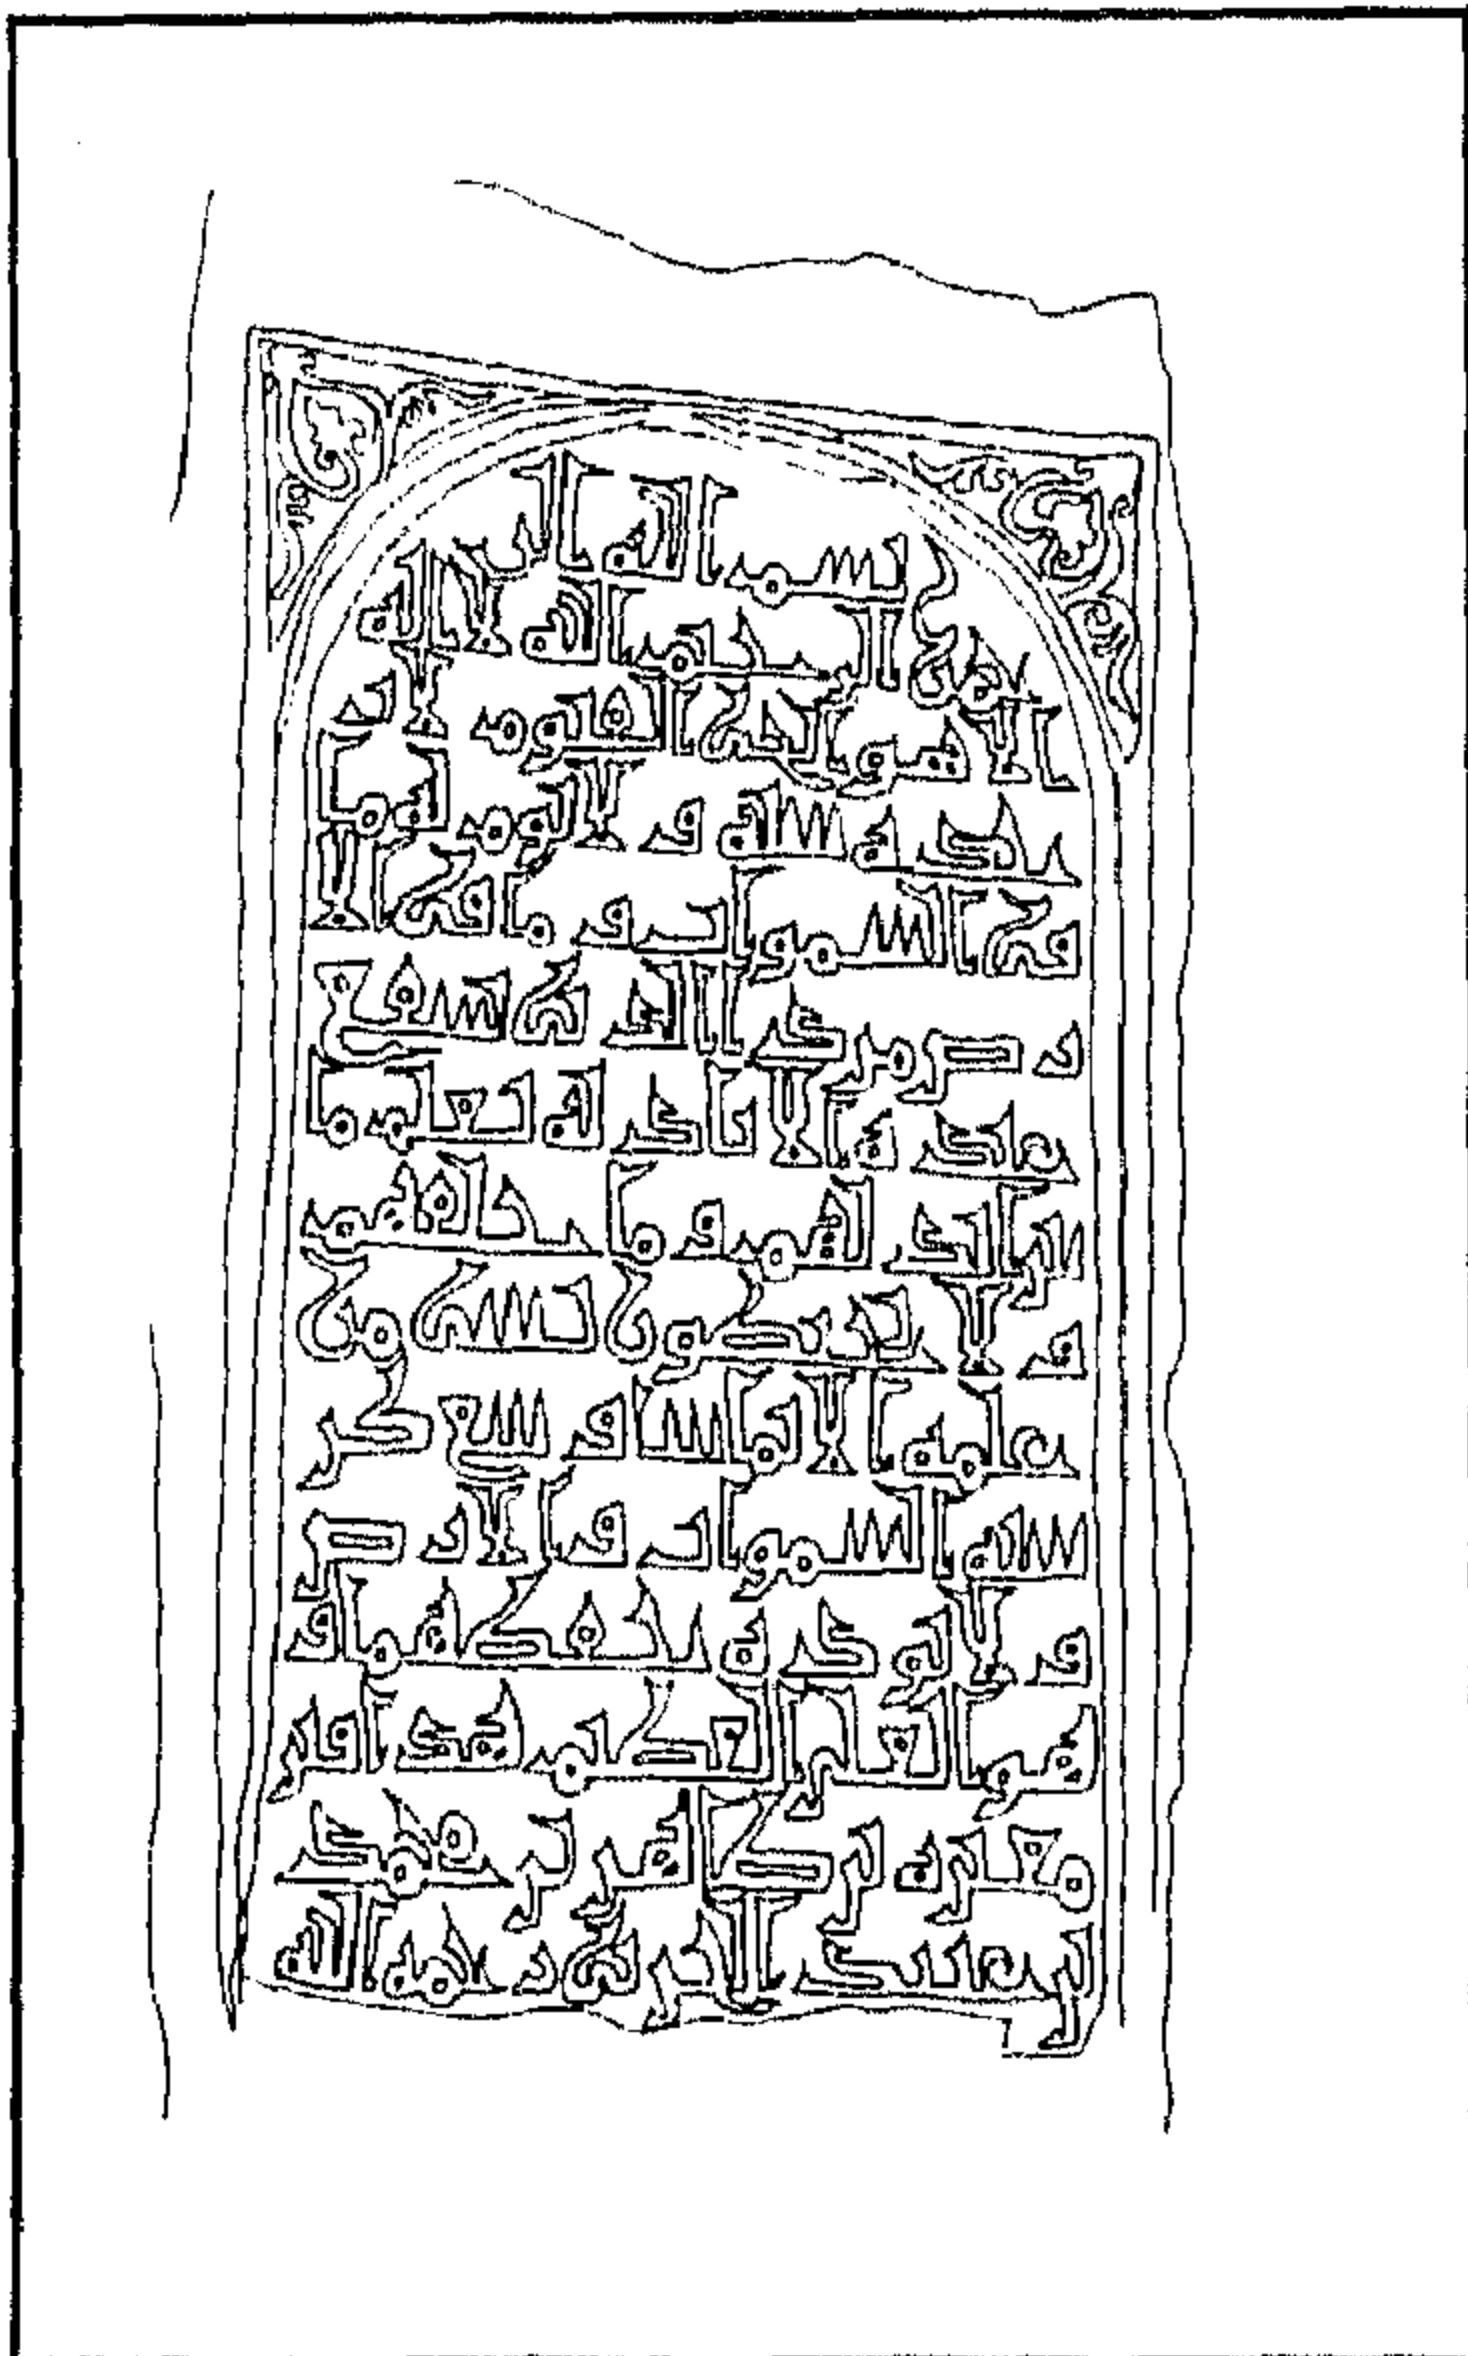 بسم الله الر
حمن الرحيم الله لا اله
الا هو الحي القيوم لا تا
خذه سنة و لا نوم له ما
في السموات و ما في الا
رض من ذا الذي يشفع
عنده الا باذنه يعلم ما
بين ايديهم و ما خلفهم
و لا يحيطون بشي من
علمه الا بما شا وسع كر
سيه السموات و الارض
و لا يوده حفظهما و
هو العلي العظيم هذا قبر
بن محمد
بن عبد الله